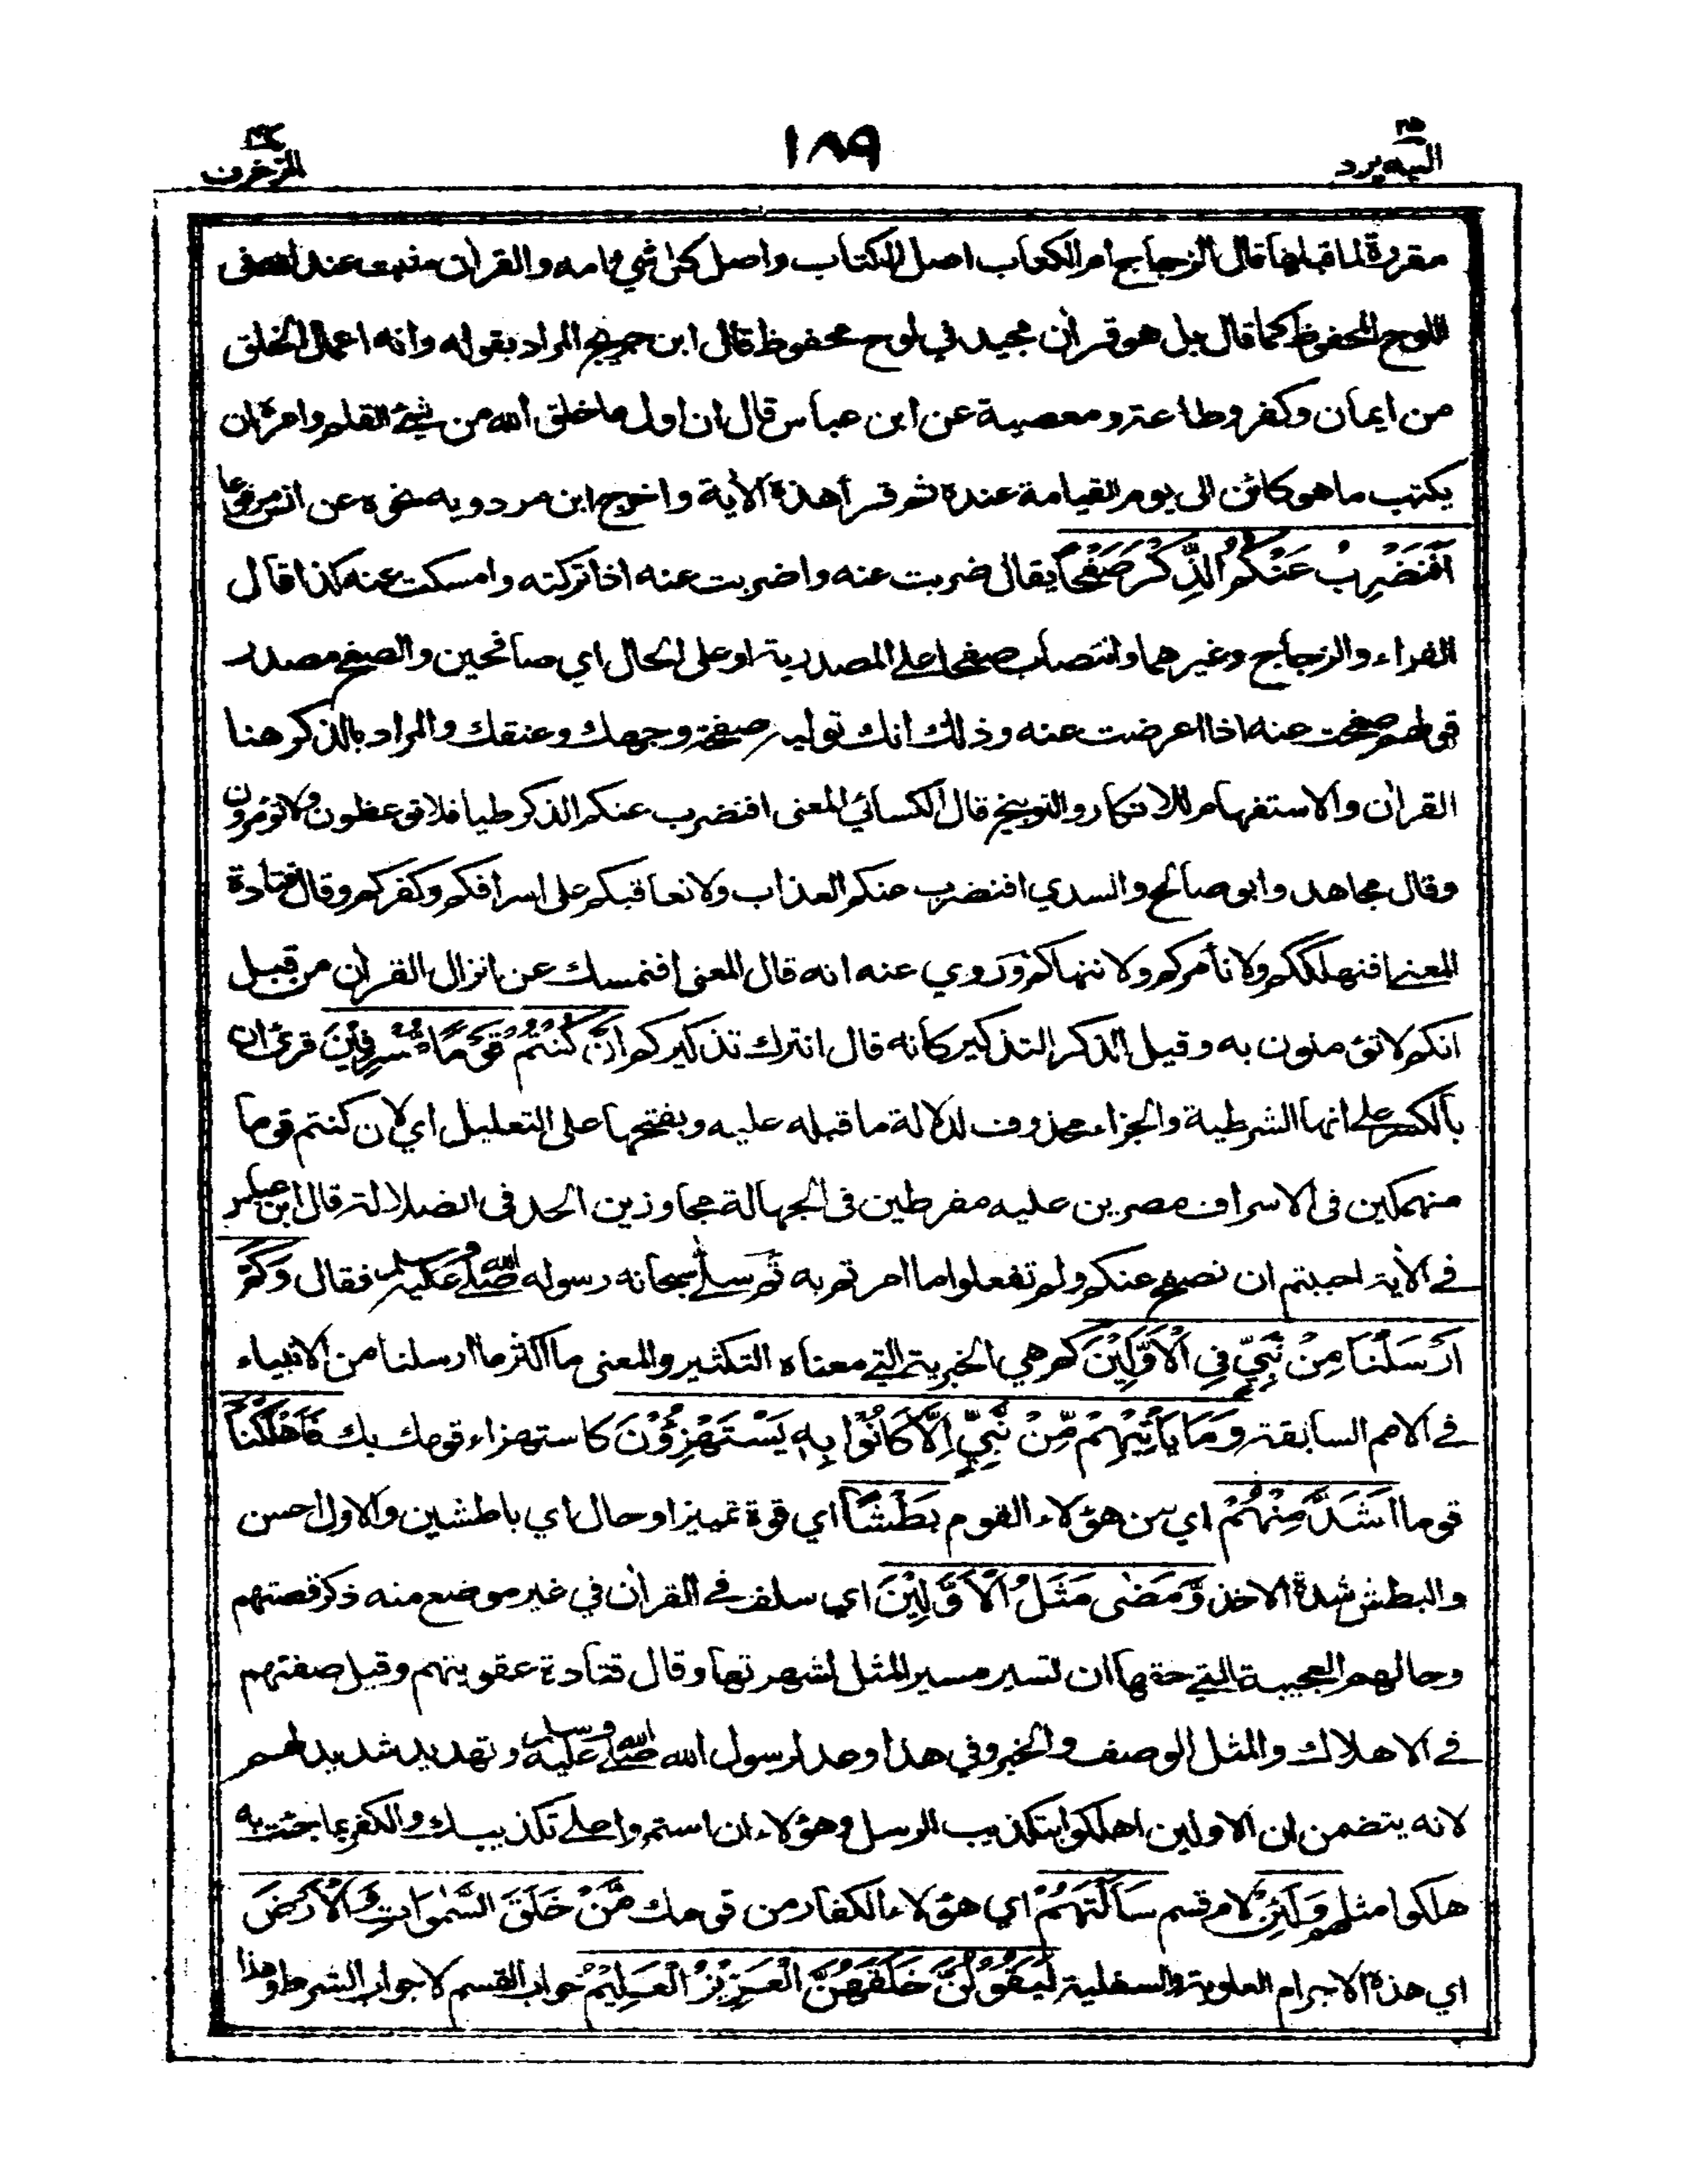 ٢٥ اليه يرد
١٨٩
٤٣ الزخرف
مقررة لما قبلها قال الزجاج ام الكتاب اصل الكتاب واصل كل شي امه والقرأن مثبت عند الله في
اللوح المحفوظ كما قال بل هو قرأن مجيد في لوح محفوظ قال ابن جريج المراد بقوله وانه اعمال الخلق
من ايمان وكفر وطاعة ومعصية عن ابن عباس قال ان اول ما خلق الله من شيئ القلم وامره ان
يكتب ما هو كائن الى يوم القيامة عنده ثم قرأ هذه الأية واخرج ابن مردويه نحوه عن انس مرفوعا
اَفَنَضْرِبُ عَنْكُمُ الذِّكْرَ صَفْحًا يقال ضربت عنه واضربت عنه اذا تركته وامسكت عنه كذا قال
الفراء والزجاج وغيرهما وانتصاب صفحا على المصدرية او على الحال اي صافحين والصفح مصدر
قولهم صفحت عنه اذا اعرضت عنه وذلك انك توليه صفحة وجهك وعنقك والمراد بالذكر هنا
القرأن والاستفهام للانكار والتوبيخ قال الكسائي المعنى افنضرب عنكم الذكر طيا فلا توعظون ولا تؤمرون
وقال مجاهد وابو صالح والسدي افنضرب عنكم العذاب ولا نعاقبكم على اسرافكم وكفركم وقال قتادة
المعنى افنهلككم ولا نأمركم ولا ننهاكم وروي عنه انه قال المعنى افنمسك عن انزال القرأن من قبل
انكم لا تؤمنون به وقيل الذكر التذكير كأنه قال انترك تذكيركم اَنْ كُنْتُمْ قَوْمًا مُّسْرِفِيْنَ قرئ ان
بالكسر على انها الشرطية والجزاء محذوف لدلالة ما قبله عليه وبفتحها على التعليل اي لان كنتم قوما
منهمكين فى الاسراف مصرين عليه مفرطين فى الجهالة مجاوزين الحد فى الضلالة قال ابن عباس
في الأية احببتم ان نصفح عنكم ولم تفعلوا ما امرتم به ثم سلى سبحانه رسوله صلى الله عليه وسلم فقال وَكَمْ
اَرْسَلْنَا مِنْ نَّبِيٍّ فِى الْاَوَّلِيْنَ كم هي الخبرية التي معناه التكثير والمعنى ما اكثر ما ارسلنا من الانبياء
في الامم السابقة وَمَا يَأْتِيْهِمْ مِّنْ نَّبِيٍّ اِلَّا كَانُوْا بِهٖ يَسْتَهْزِؤُوْنَ كاستهزاء قومك بك فَاَهْلَكْنَا
قوما اَشَدَّ مِنْهُمْ اي من هؤلاء القوم بَطْشًا اي قوة تميز او حال اي باطشين والاول احسن
والبطش شدة الاخذ وَّمَضٰى مَثَلُ الْاَوَّلِيْنَ اي سلف في القرأن في غير موضع منه ذكر قصتهم
وحالهم العجيبة التي حقها ان تسير مسير المثل لشهرتها وقال قتادة عقوبتهم وقيل صفتهم
في الاهلاك والمثل الوصف والخبر وفي هذا وعد لرسول الله صلى الله عليه وسلم وتهديد شديد لهم
لانه يتضمن ان الاولين اهلكوا بتكذيب الرسل وهؤلاء ان استمروا على تكذيبك والكفر بما جئت به
هلكوا مثلهم وَلَئِنْ لام قسم سَاَلْتَهُمْ اي هؤلاء الكفار من قومك مَّنْ خَلَقَ السَّمٰوَاتِ وَالْاَرْضَ
اي هذه الاجرام العلوية والسفلية لَيَقُوْلُنَّ خَلَقَهُنَّ الْعَزِيْزُ الْعَلِيْمُ جواب القسم لا جواب الشرط وهذا